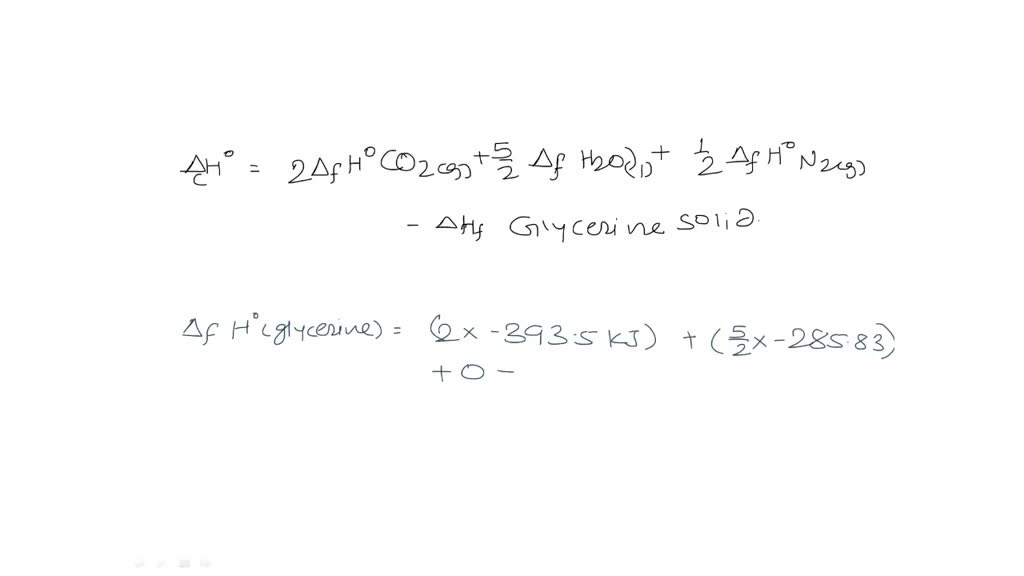 ΔcH° = 2ΔfH°CO2(g) + 5/2 Δf H2O(l) + 1/2 ΔfH°N2(g)
- ΔHf Glycerine solid.
Δf H°(glycerine) = (2x -393.5 KJ) + (5/2 x -285.83)
+ 0 -